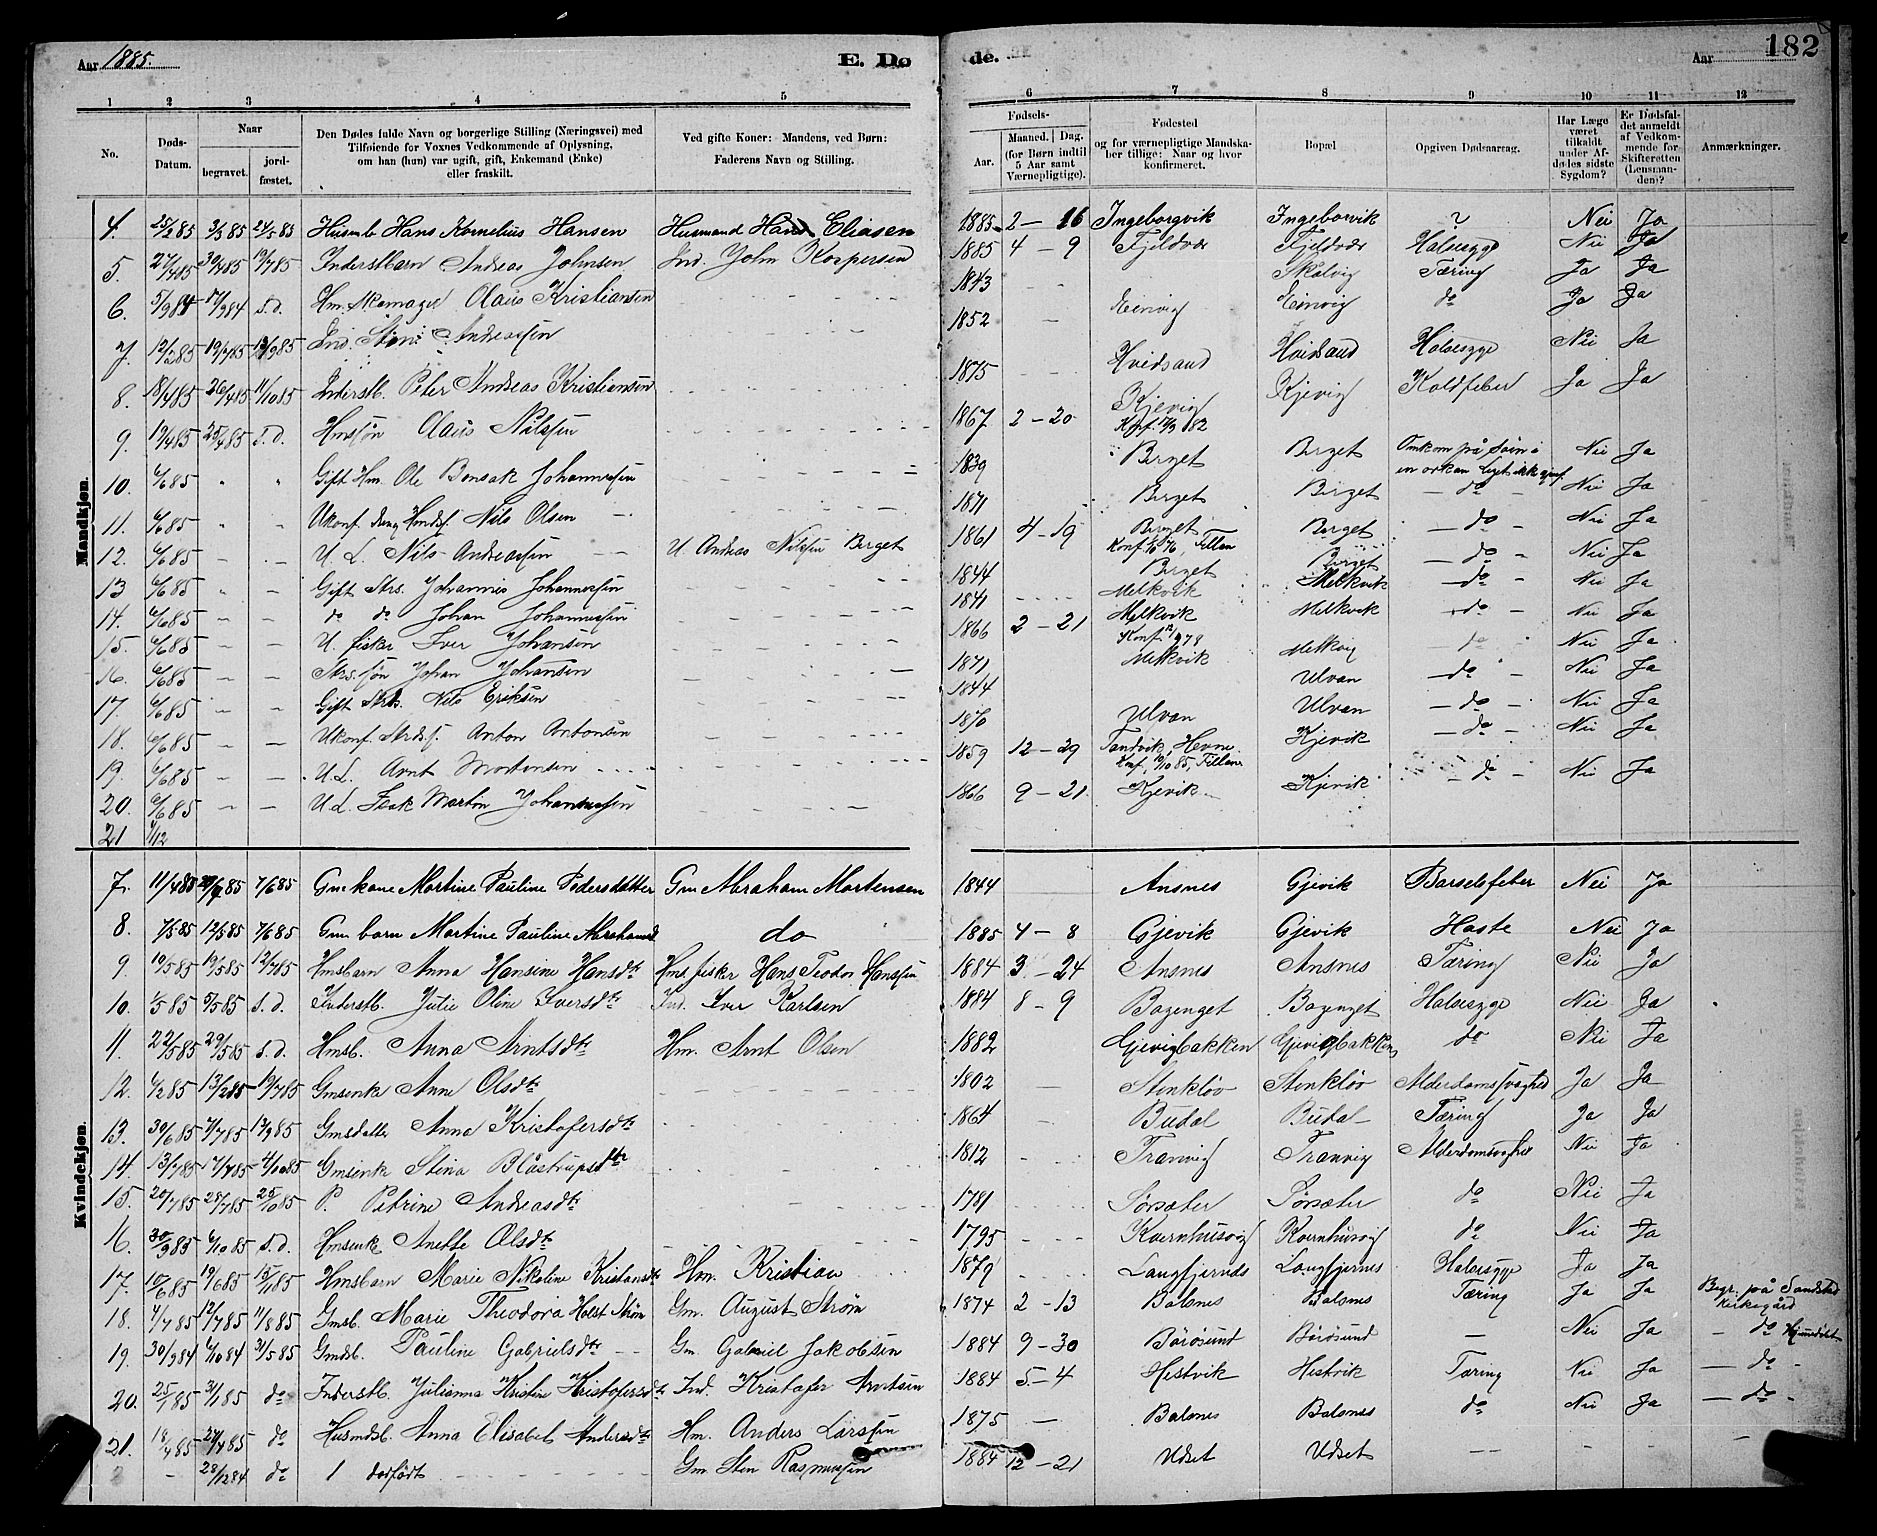 Aar 1885.
E. Dø
de.
Aar
182
1
2
3
4
5
6
7
8
9
10
11
12
No.
Døds-Datum.
Naar
begravet.
jord-fæstet.
Den Dødes fulde Navn og borgerlige Stilling (Næringsvei) med
Tilføiende for Voxnes Vedkommende af Oplysning,
om han (hun) var ugift, gift, Enkemand (Enke)
eller fraskilt.
Ved gifte Koner: Mandens, ved Børn:
Faderens Navn og Stilling.
Fødsels-
Aar.
Maaned. Dag.
(for Børn indtil
5 Aar samt
Værnepligtige).
Fødested
og for værnepligtige Mandska-
ber tillige: Naar og hvor
konfirmeret.
Bopæl
Opgiven Dødsaarsag.
Har Læge
været
tilkaldt
under Af-
dødes sidste
Sygdom?
Er Dødsfal-
det anmeldt
af Vedkom-
mende for
Skifteretten
(Lensman-
den)?
Anmærkninger.
Mandkjøn.
4. 25/2 85 3/3 85 24/5 85 Husmb Hans Kornelius Hansen Husmand Hans Eliasen 1885 2 - 16 Ingeborgvik Ingeborvik ? Nei Ja
5. 27/4 85 30/4 85 19/7 85 Inderstbarn Andreas Johnsen Ind. John Kaspersen 1885 4 - 9 Fjeldvær Fjeldvær Halsesyge Nei Ja
6. 5/9 84 17/9 84 s.d. Hm. skomager Olaus Kristiansen 1843 Skalvig Tæring Ja Ja
7. 12/2 85 19/2 85 13/9 85 Ind. Andreassen 1852 Einvig Einvig do Ja Ja
8. 18/4 85 26/4 85 11/10 85 Inderstb. Peter Andreas Kristiansen 1875 Hvidsand Hvidsand Halsesyge Nei Ja
9. 19/4 85 25/4 85 s.d. Hmssøn Olaus Nilssen 1867 2 - 20 Kjevig Kjevig Koldfeber Ja Ja
10. 6/6 85 Gift Hm. Ole Bonsak Johannessen 1839 Berget Berget Omkom på Søen i en orkan Nei Ja
11. 6/6 85 Ukonf. Nils Olsen 1871 Berget Berget - do - Nei Ja
12. 6/6 85 U. L. Nils Andreassen U. Andreas Nilssen Berget 1861 4 - 19 Berget Konf. Fillan Berget - do - Nei Ja
13 6/6 85 Gift Strs. Johannes Johannessen 1844 Berget Berget - do - Nei Ja
14. 6/6 85 do do Johan Johannessen 1841 Melkvik Melkvik - do - Nei Ja
15. 6/6 85 U. fisker Iver Johansen 1866 2 - 21 Melkvik Melkvik do Nei Ja
16. 6/6 85 Strs. søn Johan Johansen 1871 Melkvik Melkvig do Nei Ja
17. 6/6 85 Gift Strs. Nils Eriksen 1844 Ulvan - do - Nei Ja
18. 6/6 85 Ukonf. Strds. Anton Antonsen 1870 Ulvan Ulvan - do - Nei Ja
19. 6/6 85 U.L. Arnt Mortensen 1859 12 - 29 Hevne Konf. Fillan Kjevik - do - Nei Ja
20. 6/6 85 U.L. Isak Martin Johannessen 1866 9 - 21 Kjevik Kjevik - do - Nei Ja
21
Kvindekjøn.
7. 11/4 85 7/6 85 Gm kone Martine Pauline Pedersdatter Gm Abraham Mortensen 1844 Ansnes Gjevik Barselsfeber Nei Ja
8. 7/5 85 12/5 85 7/6 85 Gm barn Martine Pauline Abrahamsd do 1885 4 - 8 Gjevik Gjevik Hoste Nei Ja
9 10/5 85 19/5 85 12/7 85 Hmsbarn Anna Hansine Hansdtr Hmd fisker Hans Teodor Hanssen 1884 3 - 24 Ansnes Ansnes Tæring Nei Ja
10. 1/5 85 5/5 85 s.d. Inderstb. Julie Oline Iversdtr Ind. Iver Karlsen 1884 8 - 9 Bagenget Bagenget Halsesyge Nei Ja
11. 22/5 85 29/5 85 s.d. Hmsb. Anna Arntsdtr Hm. Arnt Olsen 1882 Gjevigbakken Gjevigbakken do Nei Ja
12. 6/2 85 13/2 85 19/7 85 Gmsenke Anne Olsdtr 1802 Stenkløv Stenkløv Alderdomssvaghed Ja Ja
13. 30/6 85 7/7 85 13/9 85 Gmsdatter Anna Kristofersdtr 1864 Budal Budal Tæring Ja Ja
14. 13/7 85 17/7 85 4/10 85 Gmsenk Stina Blåstrupsdtr 1812 Tranvig Tranvig Alderdomsvaghed Nei Ja
15. 20/7 85 28/7 85 25/10 85 P. Petrine Andreasdtr 1781 Sørsæter Sørsæter do Nei Ja
16. 30/9 85 6/10 85 s.d. Hmsenke Anette Olsdtr 1795 Kvernhusvig Kvernhusvig do Nei Ja
17. 10/6 85 19/6 85 Hmsbarn Marie Nikoline Kristiansdtr Hm. Kristian 1879 Langfjernes Langfjernes Halsesyge Ja Ja
18. 4/7 85 12/7 85 11/8 85 Gmsb. Marie Theodora Holst Strøm Gm. August Strøm 1874 2 - 13 Balsnes Balsnes Tæring Ja Ja Begr. på Sandstad kirkegård
19. 30/9 84 6/10 84 31/5 85 Gmdsb. Pauline Gabrielsdtr Gm. Gabriel Jakobsen 1884 9 - 30 Børøsund Børøsund - Nei Ja - do
20. 25/1 85 3/1 85 do Inderstb. Julianna Kristine Kristofersdtr Ind. Kristofer Arntsen 1884 5 - 4 Hestvik Hestvik Tæring Nei Ja - do -
21. 18/4 85 27/4 85 do Husmdsb. Anna Elisabet Andersdtr Hm. Anders Larssen 1875 - Balsnes Balsnes do Nei Ja - do -
- 28/12 84 do 1 dødfødt Gm. Sten Rasmussen 1884 12 - 21 Udset Udset